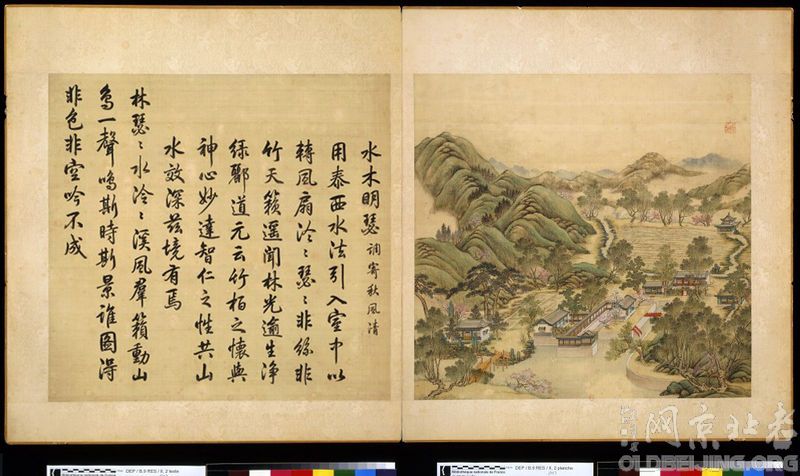 水木明瑟 調寄秋風清
用泰西水法引入室中以
轉風扇泠ゝ瑟ゝ非絲非
竹天籟遥聞林光逾生净
緑酈道元云竹柏之懷與
神心妙達智仁之性共山
水效深兹境有焉
林瑟ゝ水泠ゝ溪風羣籟動山
鳥一聲鳴斯時斯景誰圖得
非色非空吟不成
网京北老
OLDBEIJING.ORG
Bibliothèque nationale de France
Bibliothèque nationale de France